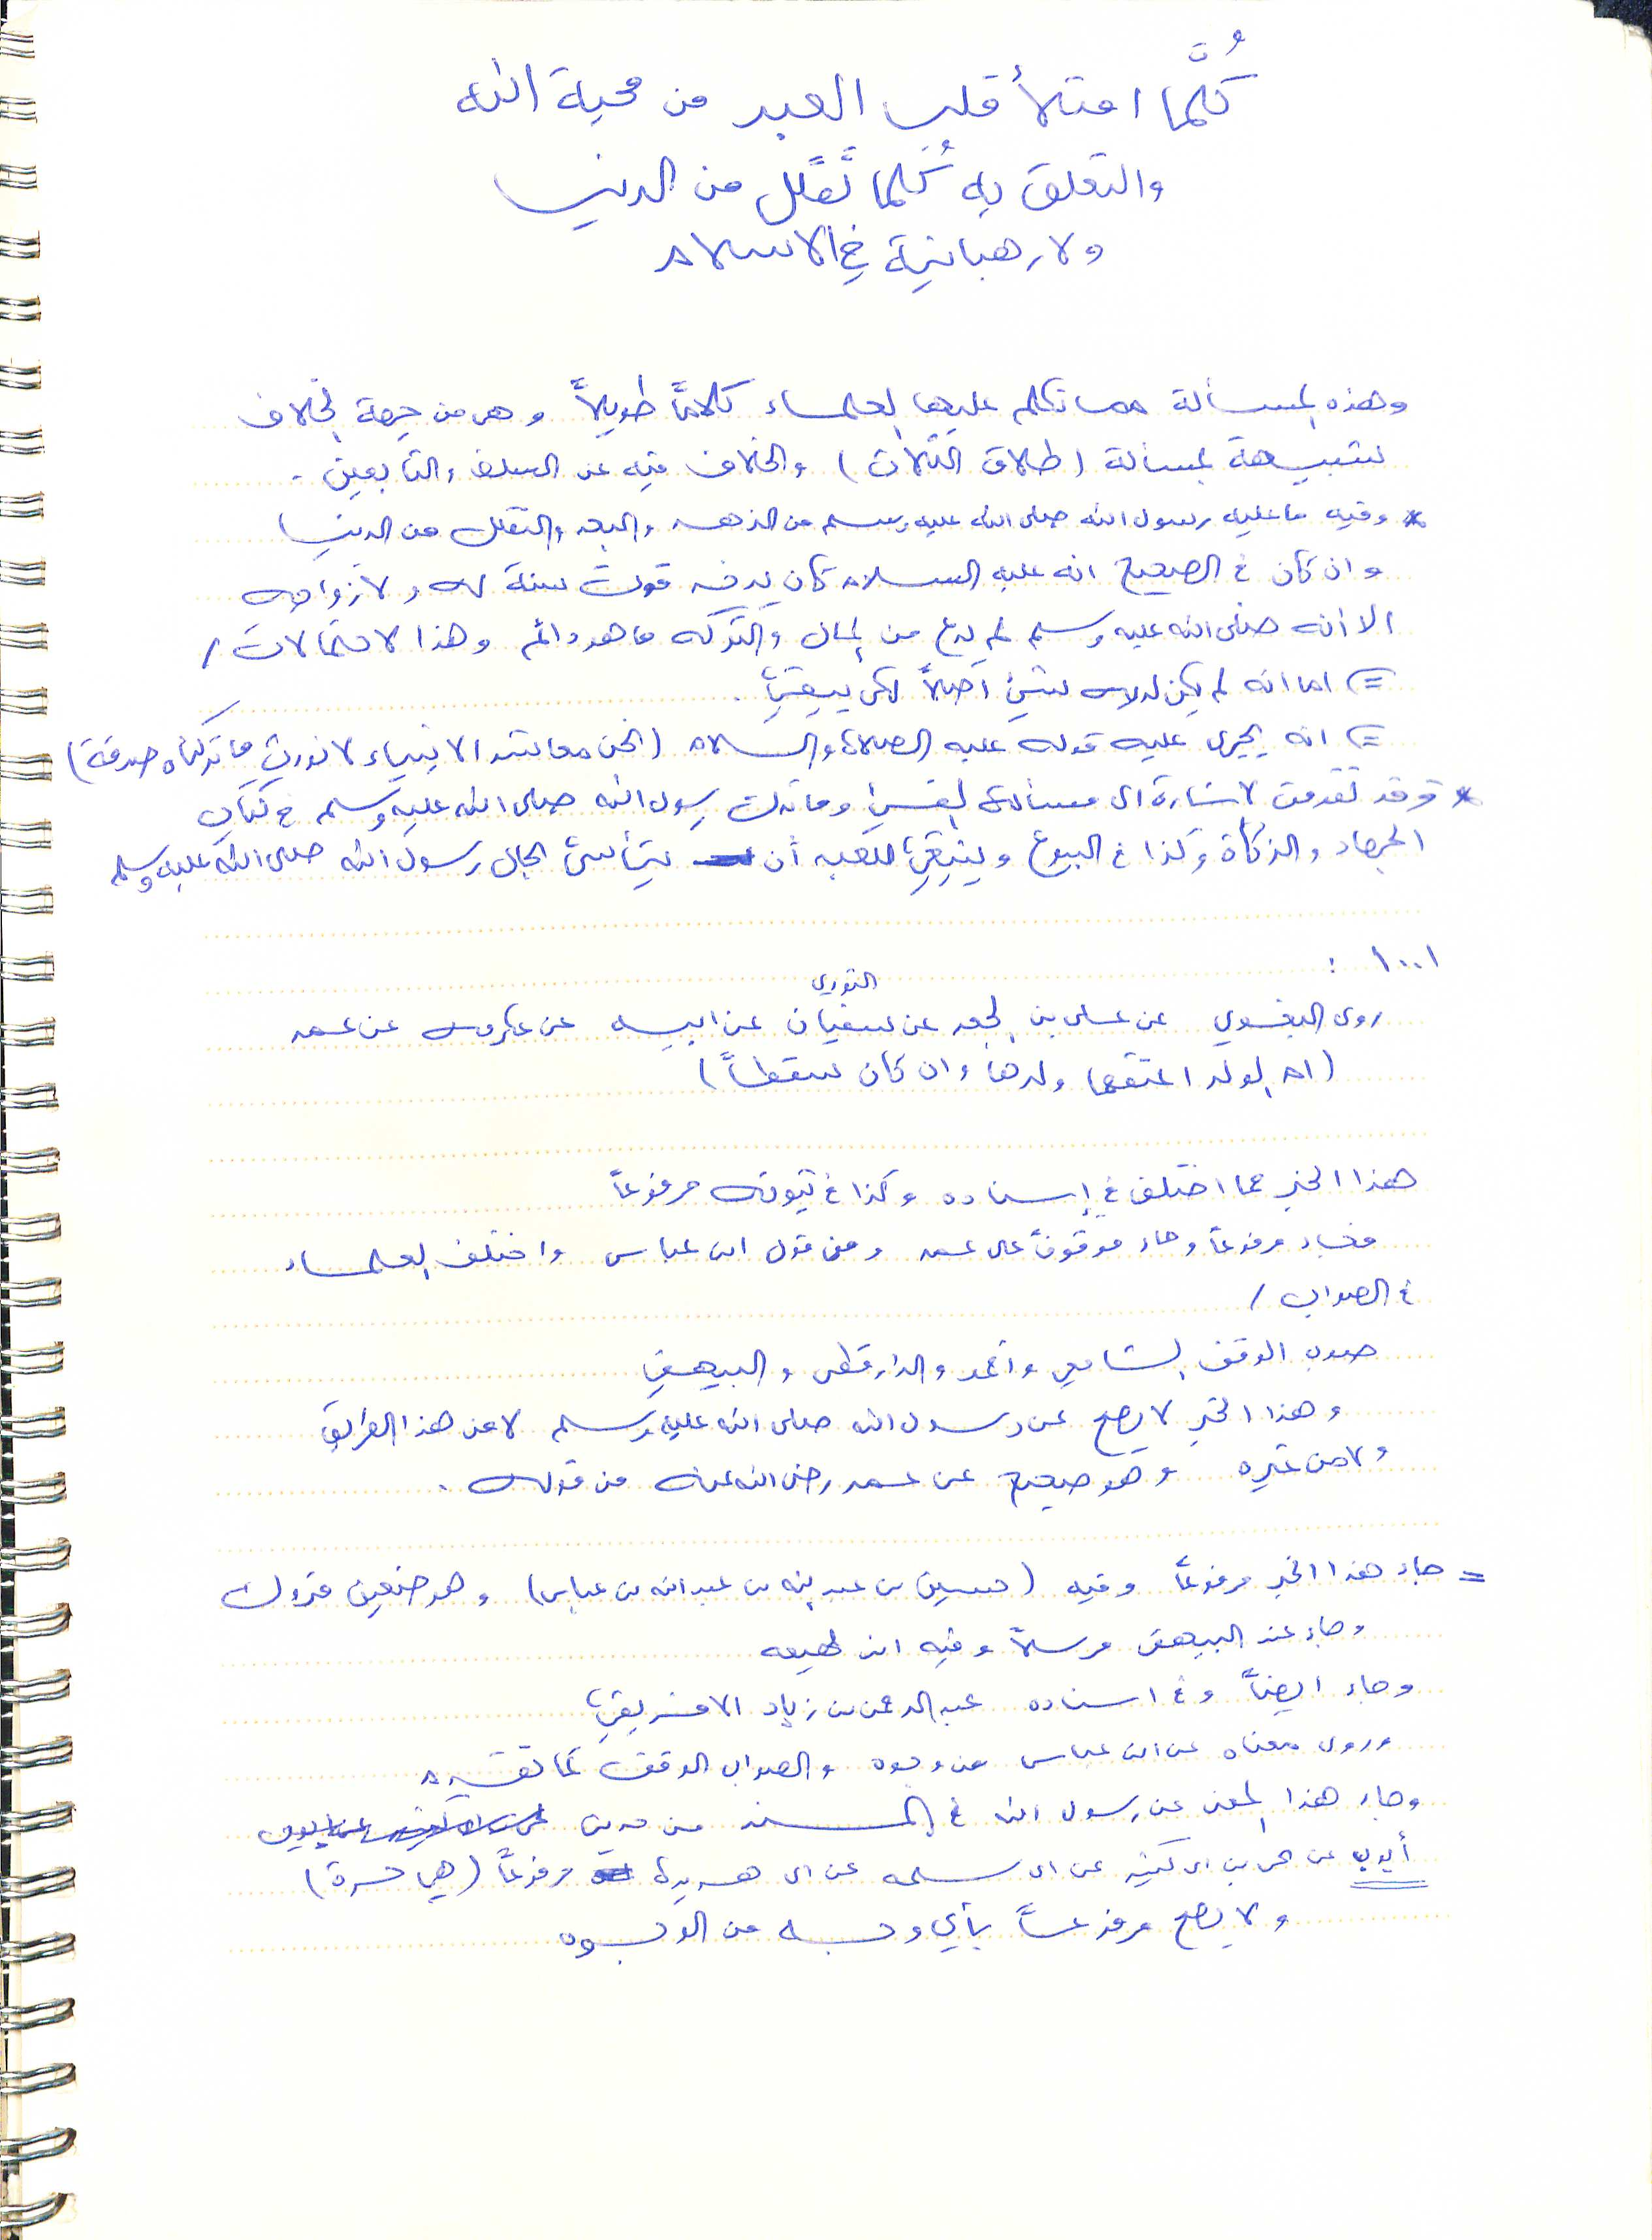 كُلَّما امتلأ قلب العبد من محبة الله
والتعلق به كُلما تَقلَّل من الدنيا
ولا رهبانية في الاسلام
وهذه المسألة مما تكلم عليها العلماء كلاماً طويلاً وهي من جهة الخلاف
شبيهة بمسألة (طلاق الثلاث) والخلاف فيه عن السلف والتابعين .
* وفيه ما عليه رسول الله صلى الله عليه وسلم من الزهد والبعد والتقلل من الدنيا
وان كان في الصحيح انه عليه السلام كان يدخر قوت سنة له ولأزواجه
الا أنه صلى الله عليه وسلم لم يدع من المال والتركه ما هو دائم وهذا لاحتمالات /
=) اما انه لم يكن لديه شيئ اصلاً لكي يبقى .
=) انه يجرى عليه قوله عليه الصلاة والسلام (نحن معاشر الانبياء لا نورث ما تركناه صدقة)
* وقد تقدمت لاشارة الى مسألة الفيئ وما ترك رسول الله صلى الله عليه وسلم في كتاب
الجهاد والزكاة وكذا في البيوع وينبغي للعبد أن يتأسى بحال رسول الله صلى الله عليه وسلم
١٠٠١ :
روى البغوي عن علي بن الجعد عن سفيان الثوري عن ابيه عن عكرمه عن عمر
(ام الولد اعتقها ولدها وان كان سقطاً)
هذا الخبر مما اختلف في إسناده وكذا في ثبوته مرفوعاً
فجاء مرفوعاً وجاء موقوفاً على عمر ومن قول ابن عباس واختلف العلماء
في الصواب /
صوب الوقف الشافعي واحمد والدارقطني والبيهقي
وهذا الخبر لا يصح عن رسول الله صلى الله عليه وسلم لا من هذا الطريق
ولا من غيره وهو صحيح عن عمر رضي الله عنه من قوله .
= جاء هذا الخبر مرفوعاً وفيه (حسين بن عبد الله بن عبيد الله بن عباس) وهو ضعيف متروك
وجاء عند البيهقي مرسلاً وفيه ابن لهيعه
وجاء ايضاً وفي اسناده عبد الرحمن بن زياد الافريقي
وروى معناه عن ابن عباس من وجوه والصواب الوقف كما تقدم
وجاء هذا المعنى عن رسول الله في المسند من حديث
أيوب عن يحيى بن ابي كثير عن ابي سلمه عن ابي هريرة مرفوعاً (هي حرة)
ولا يصح مرفوعاً بأي وجه من الوجوه